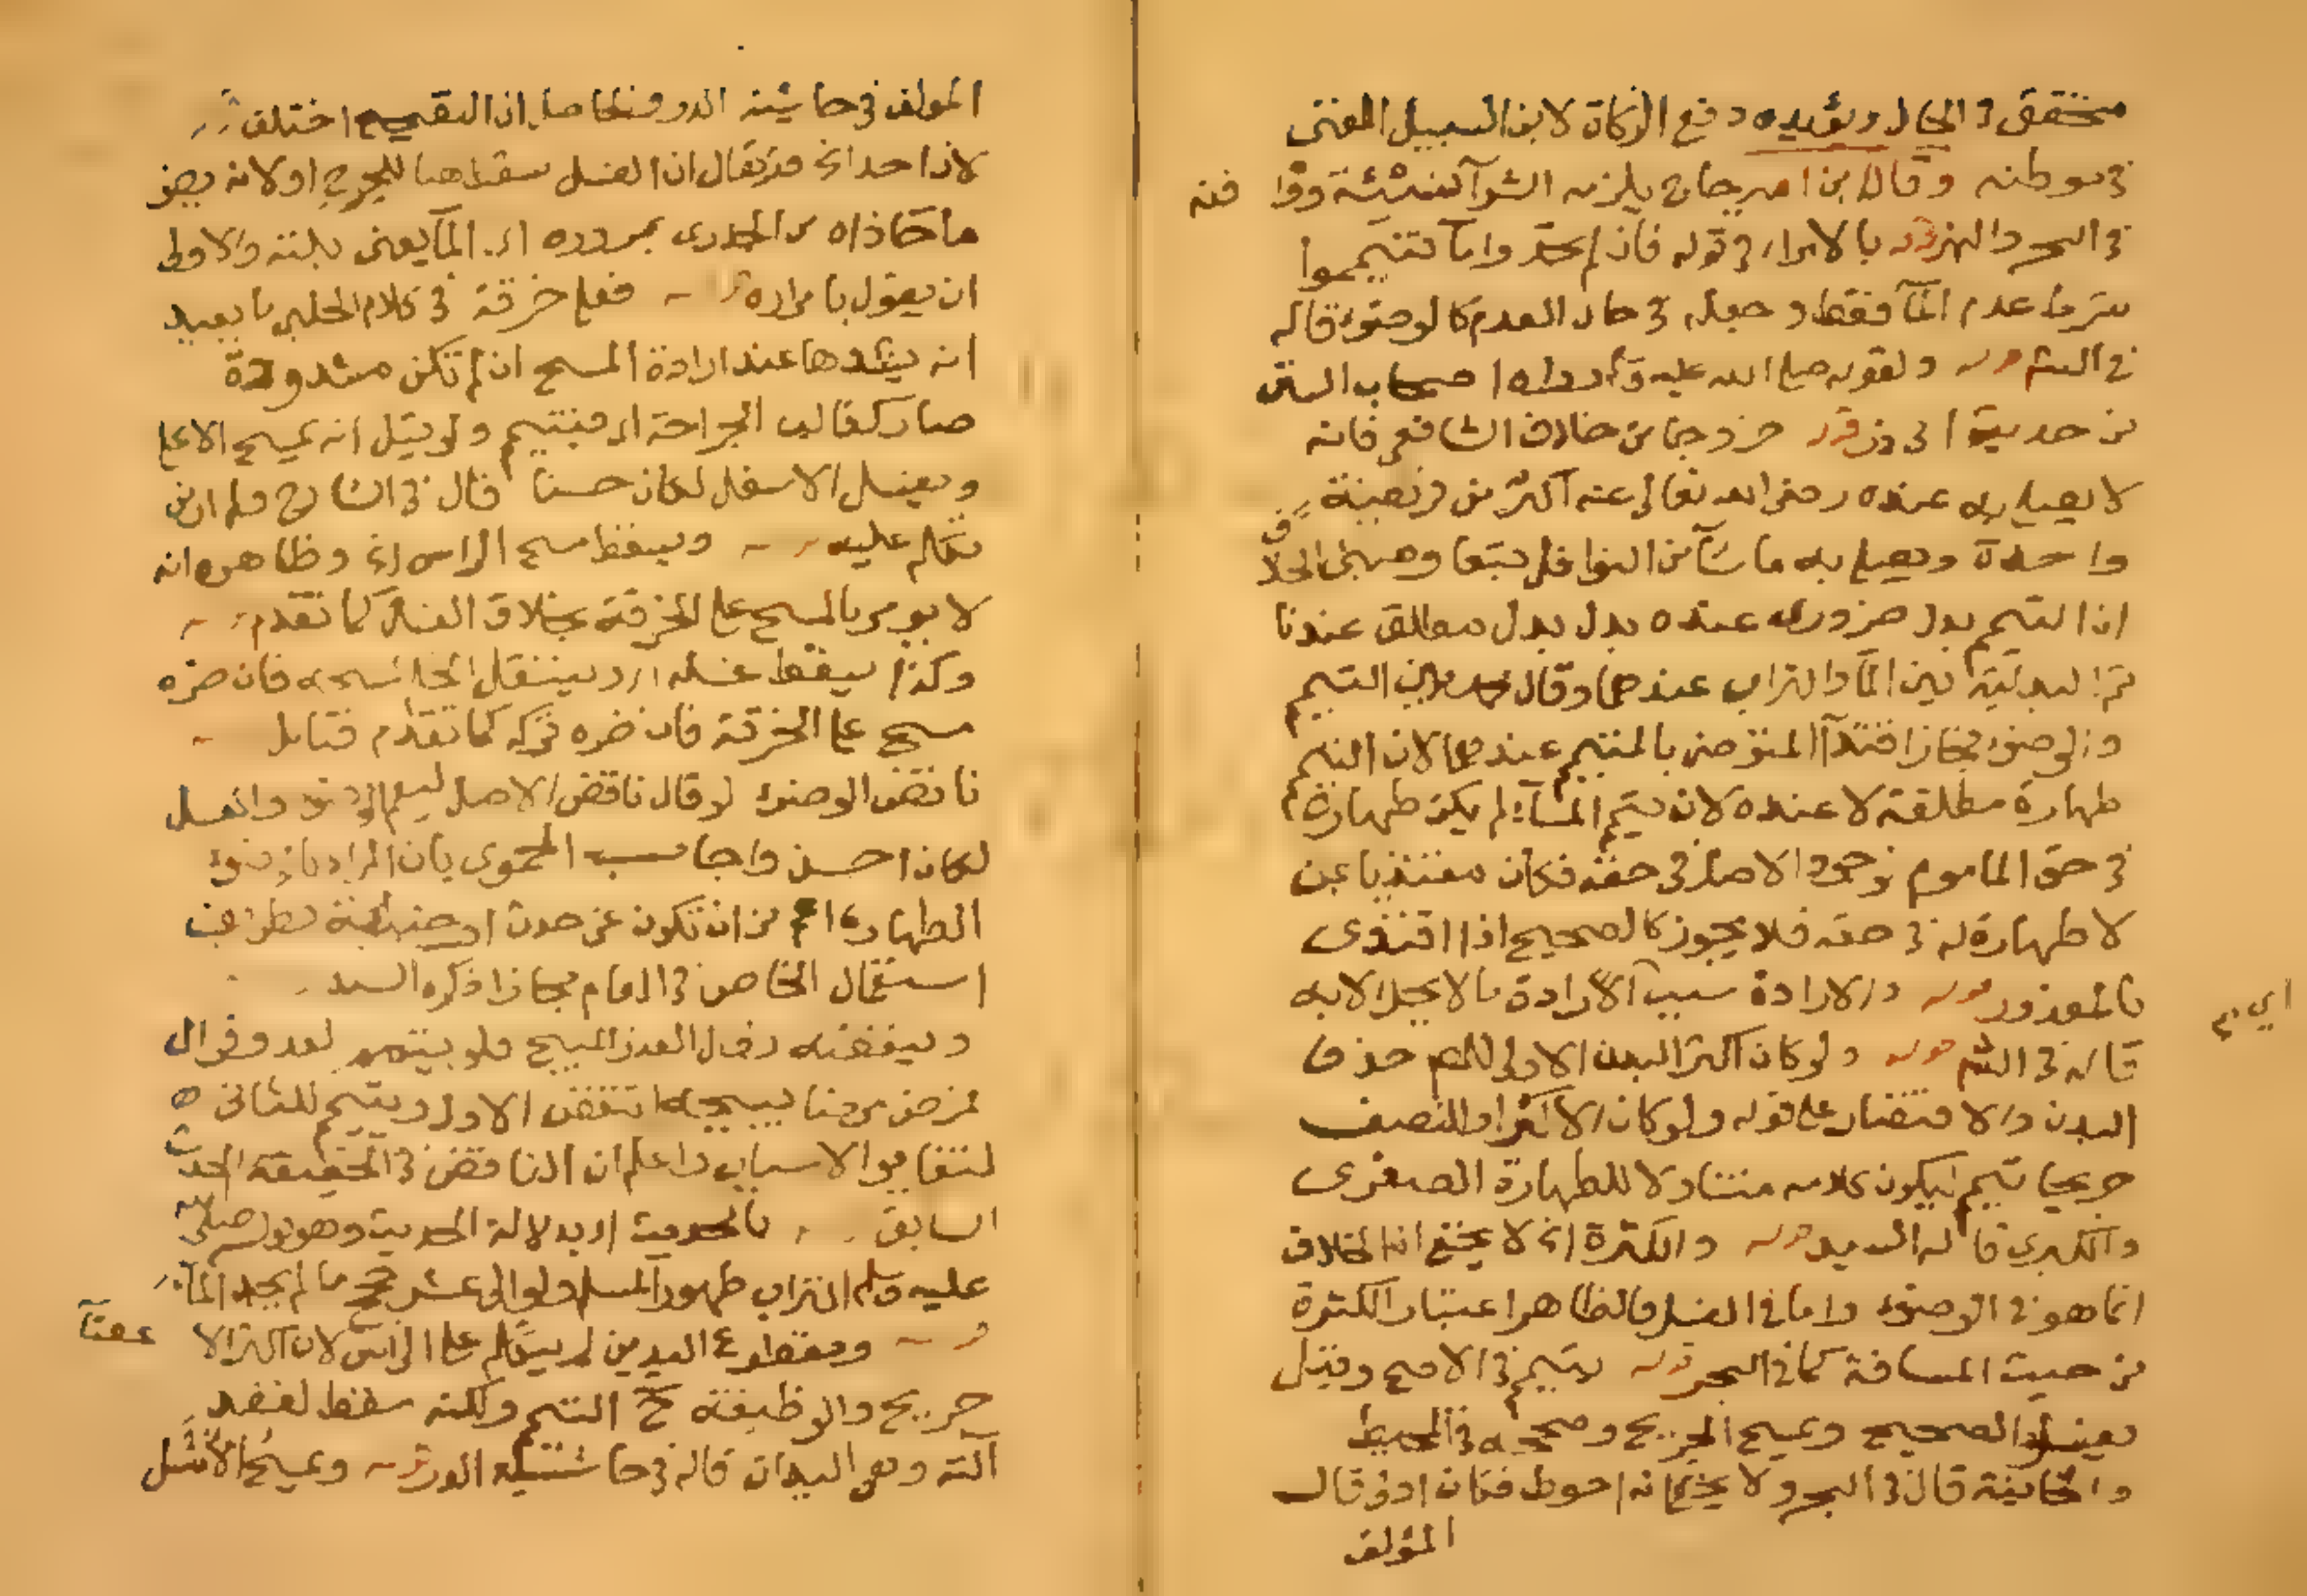 متحقق في الحال ويؤيده دفع الزكاة لابن السبيل الغنى
في موطنه وقال ابن امير حاج يلزمه الشراء نسيئة ووافقه
في البحر والنهر قوله بالايراد في قوله فان لم تجدوا ماء فتيمموا
شرط عدم الماء فقط وجعله في حال العدم كالوضوء قاله
في الشم قوله ولقوله صلى الله عليه وسلم رواه اصحاب السنن
من حديث ابى ذر قوله خروجا من خلاف الشافعي فانه
لا يصلي به عنده رضى الله تعالى عنه اكثر من فريضة
واحدة ويصلي به ما شاء من النوافل تبعا ومبنى الخلاف
ان التيمم بدل ضروري عنده بدل مطلق عندنا
ثم البدلية بين الماء والتراب عندهما وقال محمد بين التيمم
والوضوء فجاز اقتداء المتوضئ بالمتيمم عندهما لان التيمم
طهارة مطلقة لا عنده لان تيمم لم يكن طهارة
في حق الماموم لوجود الاصل في حقه فكان مقتديا بمن
لا طهارة له في حقه فلا يجوز كالصحيح اذا اقتدى
بالمعذور قوله والارادة سبب الارادة ما لا يحل الا به
اي
قاله في الشم قوله ولو كان اكثر البدن الاولى حذف
البدن والاقتصار على قوله ولو كان الاكثر او النصف
جريحا تيمم ليكون كلامه متناولا للطهارة الصغرى
والكبرى قاله السيد قوله والكثرة الخ لا يخفى ان الخلاف
انما هو في الوضوء واما في الغسل فالظاهر اعتبار الكثرة
من حيث المساحة كما في البحر قوله تيمم في الاصح وقيل
يغسل الصحيح ويمسح الجريح وصححه في المحيط
والخانية قال في البحر ولا يخفى انه احوط فكان اولى وقال
المؤلف
المولف في حاشية الدرر فالحاصل ان التصحيح اختلف
لان احدا الخ قد يقال ان الغسل سقط هنا للجرح او لانه يضر
ما حاذاه من الجدرى بمروره اي الماء يعنى بلته والاولى
ان يقول بامراره فعلى خرقة في كلام الحلبي ما يفيد
انه يشدها عند ارادة المسح ان لم تكن مشدودة
صار كغالب الجراحة اي فيتيمم ولو قيل انه يمسح الاعلى
ويغسل الاسفل لكان حسنا قال في الشارح ولم ار من
تكلم عليه ويسقط مسح الراس الخ وظاهره انه
لا يومر بالمسح على الخرقة بخلاف الغسل كما تقدم
وكذا يسقط غسله اي وينتقل الى مسحه فان ضره
مسح على الخرقة فان ضره تركه كما تقدم فتامل
ناقض الوضوء لو قال ناقض الاصل ليعم الوضوء والغسل
لكان احسن واجاب الحموى بان المراد بالوضوء
الطهارة اعم من ان تكون عن حدث او جنابة بطريق
استعمال الخاص في العام مجازا ذكره السيد
وينقضه زوال العذر المبيح فلو تيمم لعدو فزال
ثم مرض مرضا يبيحه انتقض الاول ويتيمم للثاني
لتغاير الاسباب واعلم ان الناقض في الحقيقة الحدث
السابق بالحديث اي بدلالة الحديث وهو قوله صلى الله
عليه وسلم التراب طهور المسلم ولو الى عشر حجج ما لم يجد الماء
ومقطوع اليدين لم يتكلم على الراس لان اكثر الاعضاء
جريح والوظيفة ح التيمم ولكنه سقط لفقد
آلته وهي اليدان قاله في حاشية الدرر قوله ويمسح الاشل